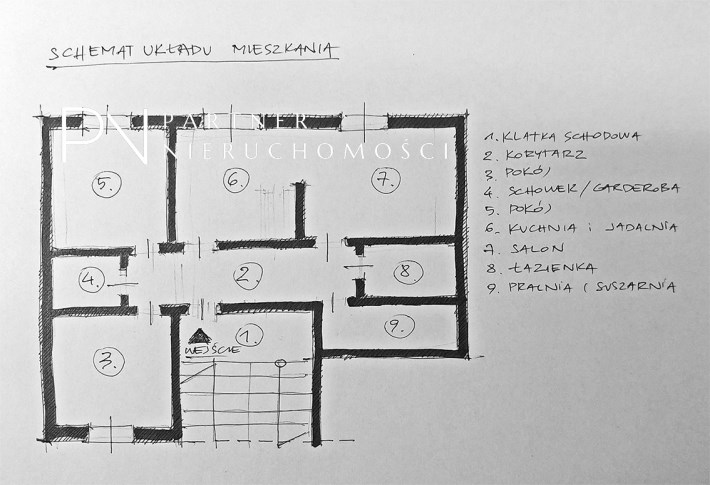 SCHEMAT UKŁADU MIESZKANIA
PN PARTNER
NIERUCHOMOŚCI
1. KLATKA SCHODOWA
2. KORYTARZ
3. POKÓJ
4. SCHOWEK/GARDEROBA
5. POKÓJ
6. KUCHNIA i JADALNIA
7. SALON
8. ŁAZIENKA
9. PRALNIA I SUSZARNIA
5.
6.
7.
4.
2.
8.
3.
1.
9.
WEJŚCIE